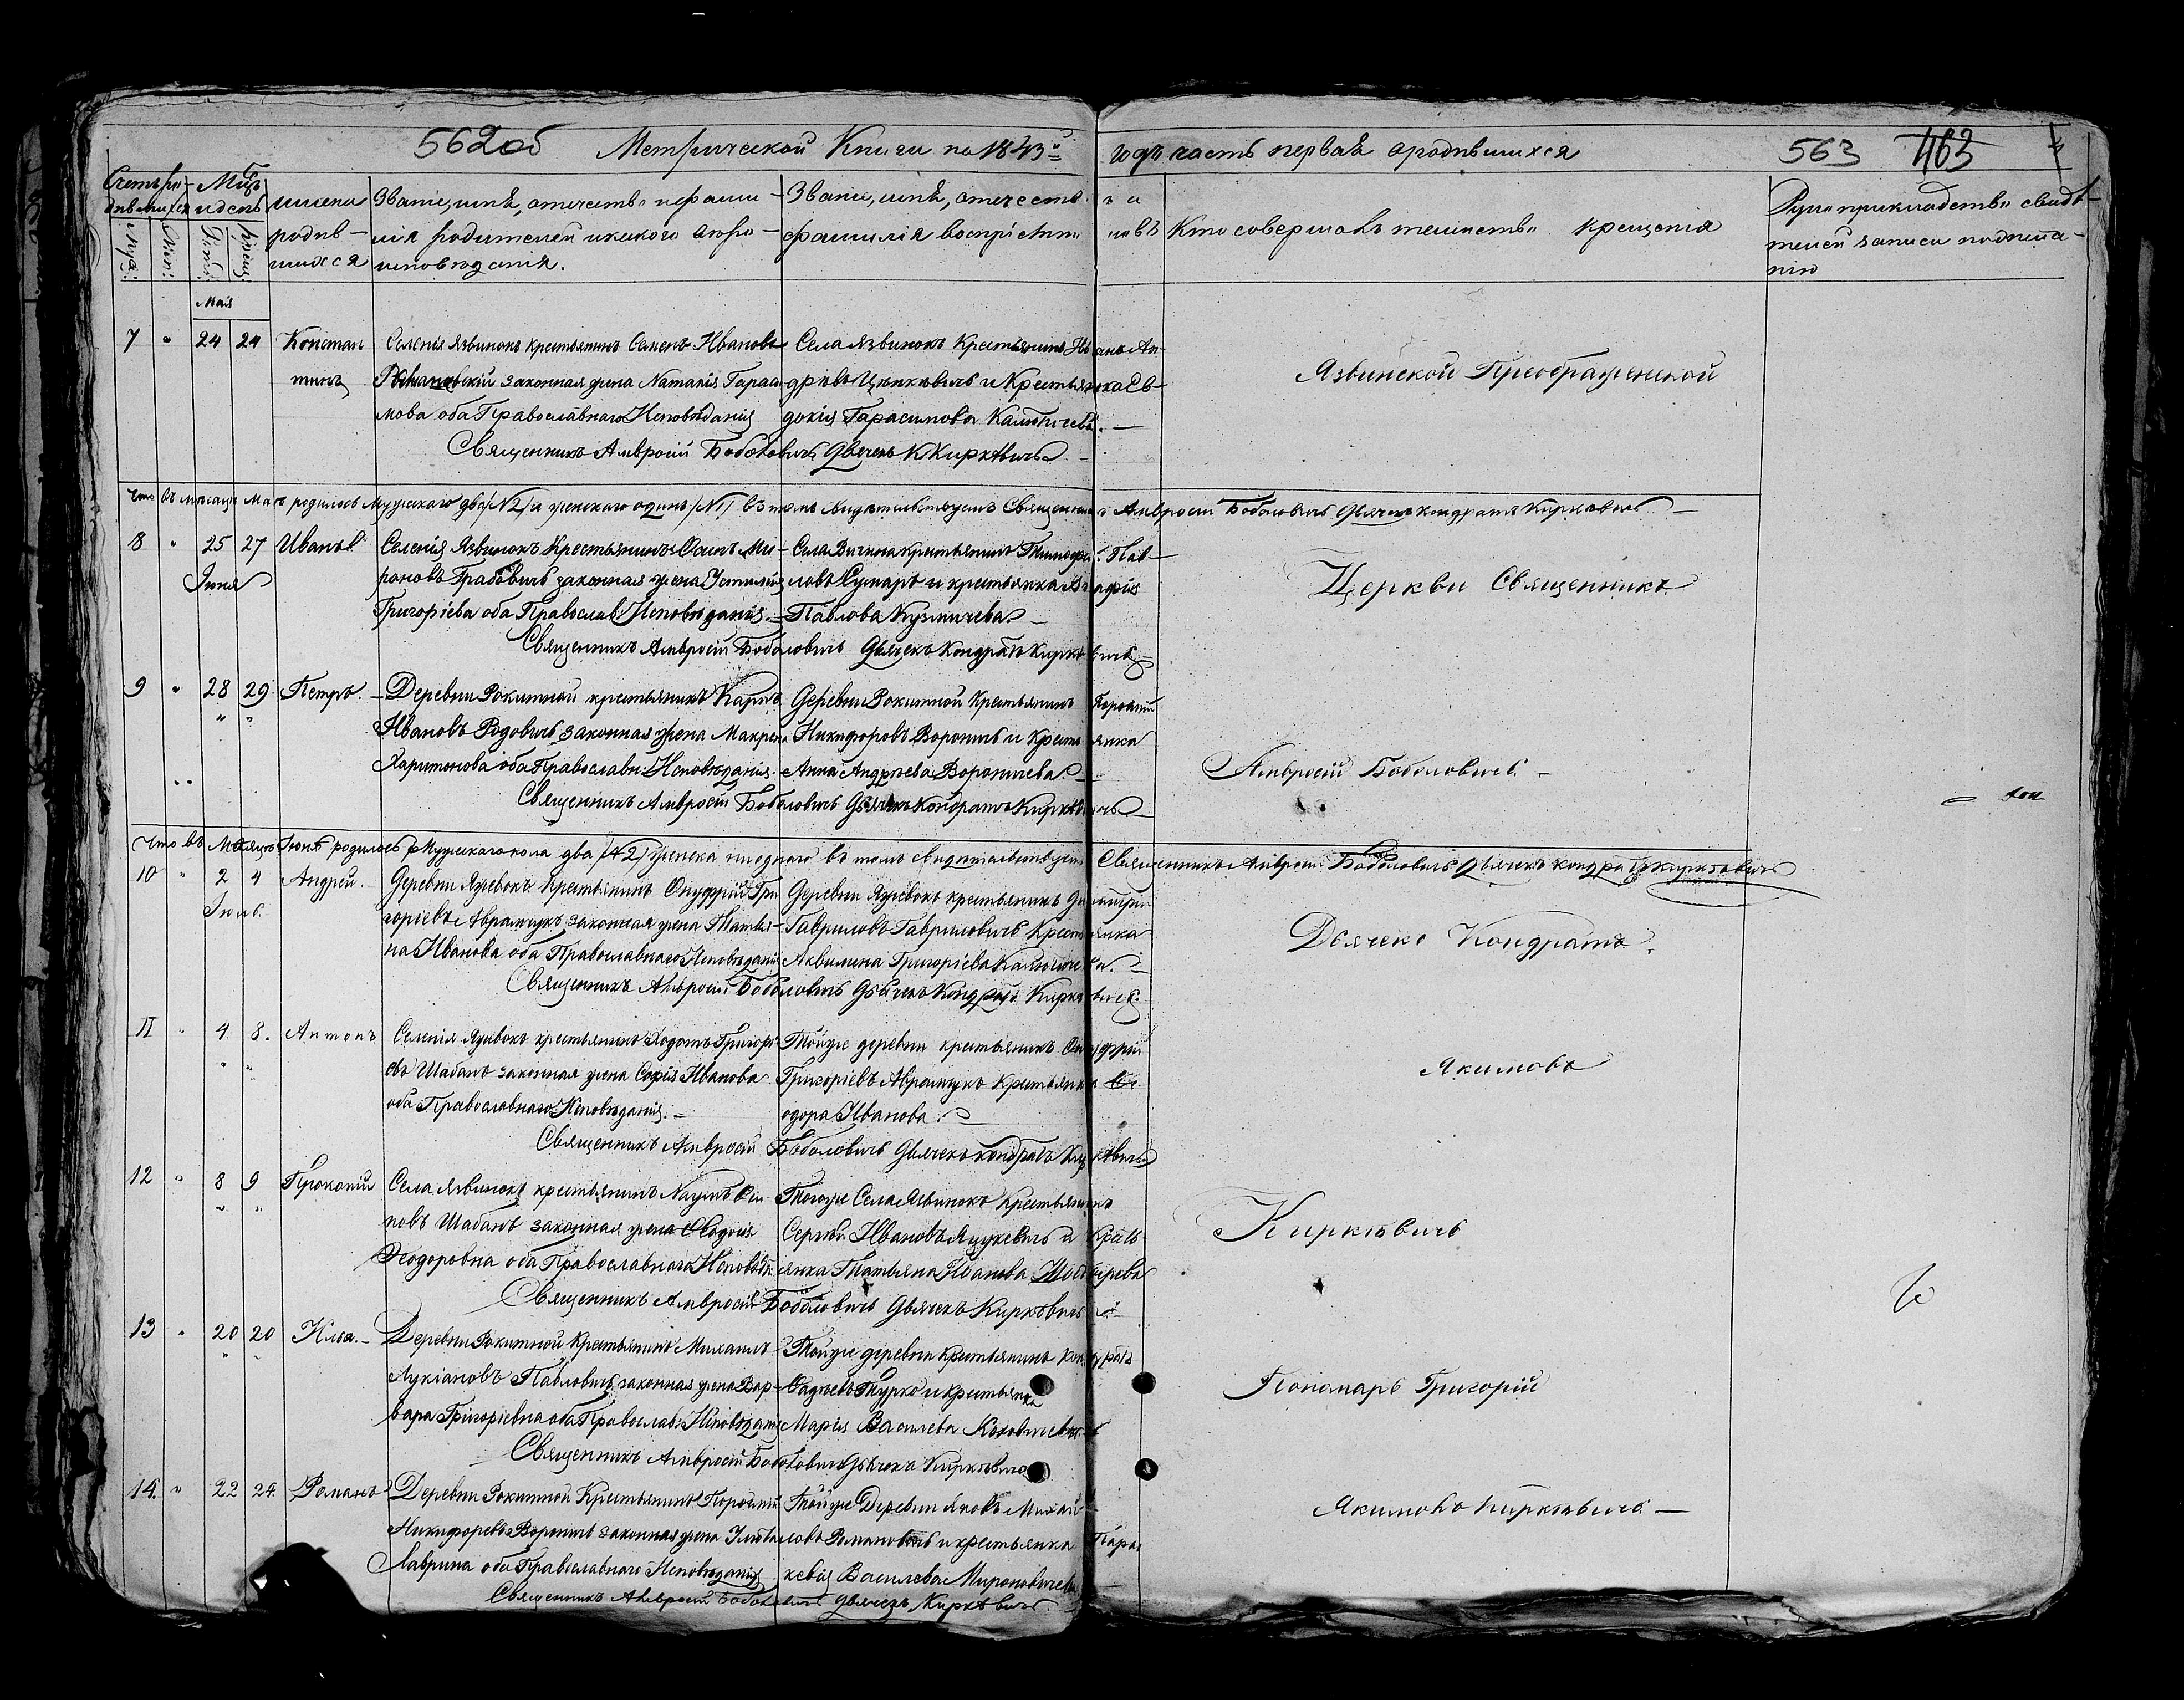 562об Метрической Книги на 1843й годъ часть первая о родившихся 563 463
Счетъ родившихся Мѣсяцъ и день имена родившихся
Званіе, имя, отечество и фамилія родителей и какого вѣроисповѣданія.
Званіе, имя, отечество и фамилія воспріемниковъ
Кто совершалъ таинство крещенія
Рукоприкладство свидѣтелей записи по желанію
Май
7 " 24 24 Константинъ
Селенія Язвинокъ крестьянинъ Семенъ Ивановъ
законная жена Наталія Гараси
мова оба Православнаго Исповѣданія
Села Язвинокъ Крестьянинъ Иванъ Ан
дреевъ и Крестьянка Ев
докія Гарасимова
Священникъ Амвросій Боболовичъ Дьячекъ К Киркевичъ
Что въ мѣсяцѣ Маѣ родилось Мужскаго два /№2/ и женскаго одинъ /№1/ въ томъ свидѣтельствуетъ Священникъ Амвросій Боболовичъ Дьячекъ Кондратъ Киркевичъ
8 " 25 27 Иванъ
Іюня
Селенія Язвинокъ Крестьянинъ Осипъ Ми
роновъ Грабовичъ законная жена Устинія
Григоріева оба Православ: Исповѣданія
Села Вичина крестьянинъ Тимофей Пав
ловъ и крестьянка Агафія
Павлова Кузмичева
Священникъ Амвросій Боболовичъ Дьячекъ Кондратъ Киркевичъ
9 " 28 29 Петръ
Деревни Рокитной крестьянинъ Карпъ
Ивановъ Родовичъ законная жена Макрена
Харитонова оба Православн: Исповѣданія
Деревни Рокитной Крестьянинъ Порфирій
Никифоровъ Вороничъ и Крестьянка
Анна Андреева Вороничева
Священникъ Амвросій Боболовичъ Дьячекъ Кондратъ Киркевичъ
Что въ Мѣсяцѣ Іюнѣ родилось Мужескаго пола два /№2/ женска ни одного въ томъ свидѣтельствуетъ Священникъ Амвросій Боболовичъ Дьячекъ Кондратъ Киркевичъ
10 " 2 4 Андрей
Іюль
Деревни Яжевокъ Крестьянинъ Онуфрій Гри
горіевъ Аврамчукъ законная жена Татья
на Иванова оба Православнаго Исповѣданія
Деревни Яжевокъ крестьянинъ Димитрій
Гавриловъ Гавриловичъ Крестьянка
Акилина Григоріева
Священникъ Амвросій Боболовичъ Дьячекъ Кондратъ Киркевичъ
11 " 4 8. Антонъ
Селенія Яжевокъ крестьянинъ Ходотъ Григорі
евъ Шабанъ законная жена Софія Иванова
оба Православнаго Исповѣданія.
Тойже деревни крестьянинъ Онуфрій
Григоріевъ Аврамчукъ Крестьянка Фе
одора Иванова
Священникъ Амвросій Боболовичъ Дьячекъ Кондратъ Киркевичъ
12 " 8 9 Прокопій
Села Язвинокъ крестьянинъ Наумъ Оси
повъ Шабанъ законная жена Ѳеодосія
Ѳеодоровна оба Православнаго Исповѣд:
Тогоже Села Язвинокъ Крестьянинъ
Сергѣй Ивановъ Яцукевичъ и Крест
янка Татьяна Иванова
Священникъ Амвросій Боболовичъ Дьячекъ Киркевичъ
13 " 20 20 Илья.
Деревни Рокитной Крестьянинъ Михаилъ
Лукіановъ Павловичъ законная жена Вар
вара Григоріевна оба Православ: Исповѣдан:
Тойже деревни крестьянинъ Кондратъ
Фадѣевъ Турко и крестьянка
Марія Васильева
Священникъ Амвросій Боболовичъ Дьячекъ Киркевичъ
14. " 22 24. Романъ
Деревни Рокитной Крестьянинъ Порфирій
Никифоровъ Вороничъ законная жена
Лаврина оба Православнаго Исповѣданія
Тойже Деревни Яковъ Михай
ловъ Романовичъ и крестьянка Пара
кевія Васильева Мироновичева
Священникъ Амвросій Боболовичъ Дьячекъ Киркевичъ
Язвинской Преображенской
Церкви Священникъ
Амвросій Боболовичъ
Дьячекъ Кондратъ
Якимовъ
Киркевичъ
Пономарь Григорій
Якимовъ Киркевичъ